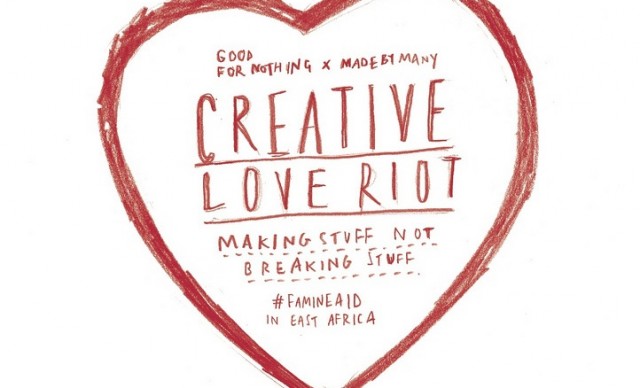 GOOD
FOR NOTHING x MADE BY MANY
CREATIVE
LOVE RIOT
MAKING STUFF NOT
BREAKING STUFF
#FAMINEAID
IN EAST AFRICA